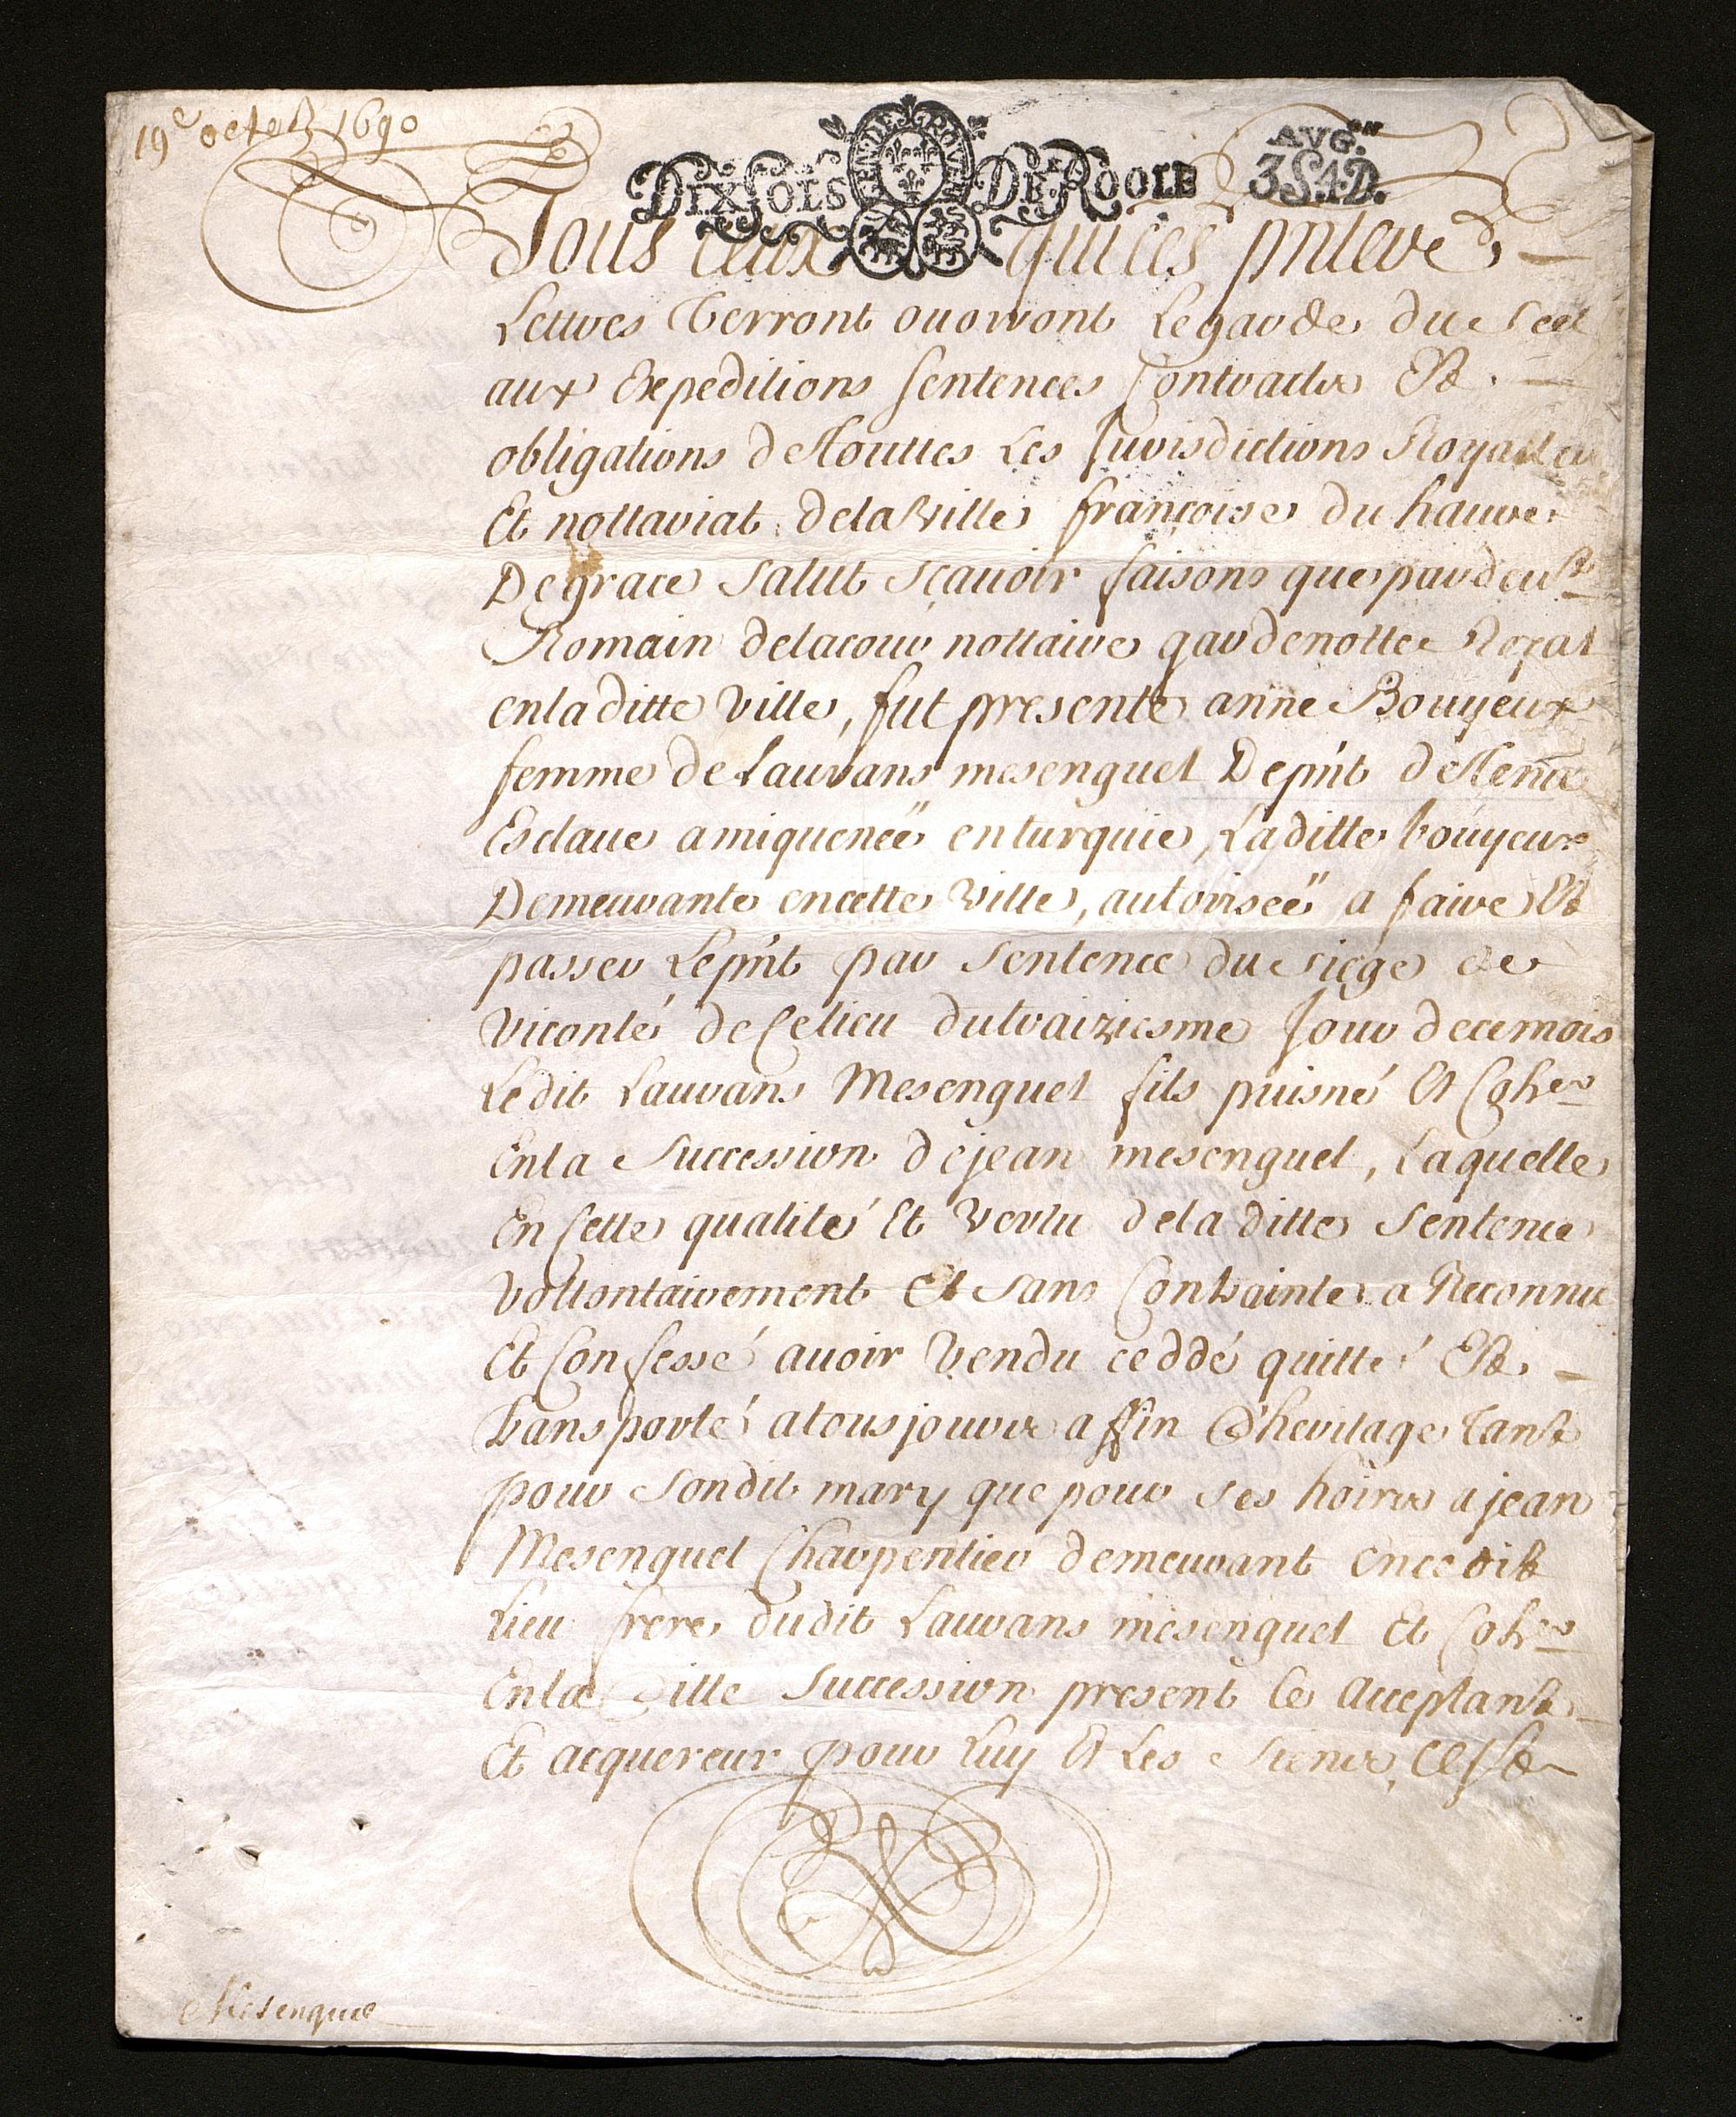 19e octob 1690
DIX SOLS DE ROOLE
GEN DE ROVEN
AVG.ON
3S.4D.
A Tous ceux qui ces pntere
Lettres Verront ou orront Le garde du Seel
aux Expeditions sentences Contractz Et
obligations de touttes Les Jurisdictions Royalles
Et nottariat de la Ville francoise du haure
De grace Salut scauoir faisons que par deut
Romain delacour nottaire gardenotte Royal
en laditte Ville, fut presente anne Bouyeux
femme de Laurans mesenguel De pnt detenu
Esclaue a miquenée en turquie, Laditte bouyeux
Demeurante en cette Ville, autorisée a faire Et
passer Le pnt par Sentence du siege de
Viconté de Ce lieu du traiziesme Jour de ce mois
Ledit Laurans Mesenguel fils puisné Et Coher
En la Succession de jean mesenguel, Laquelle
En Cette qualité Et Vertu de la ditte Sentence
Vollontairement Et sans Contrainte a Reconnu
Et Confessé auoir Vendu ceddé quitté Et
transporté a tousjours affin d'heritage tant
pour Sondit mary que pour ses hoirs a jean
Mesenguel Charpentier demeurant en ce dit
Lieu frere dudit Laurans mesenguel Et Coher
En la Ditte Succession present Ce Acceptant
Et acquereur pour Luy Et Les Siens, Cest
Mesenguel